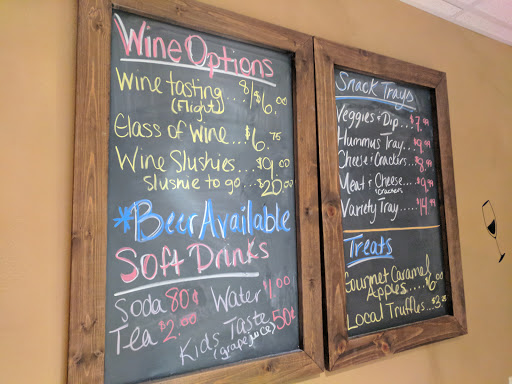 Wine Options
Wine tasting...8/$6.00
(Flight)
Glass of Wine...$6.75
Wine Slushies...$9.00
slushie to go...$20.00
*Beer Available
Soft Drinks
Soda 80¢ Water $1.00
Tea $2.00
Kids Taste 50¢
(grape juice)
Snack Trays
Veggies & Dip...$7.99
Hummus Tray...$9.99
Cheese & Crackers...$8.99
Meat & Cheese...$9.99
& crackers
Variety Tray.....$14.99
Treats
Gourmet Caramel
Apples.....$6.00
Local Truffles...$3.25